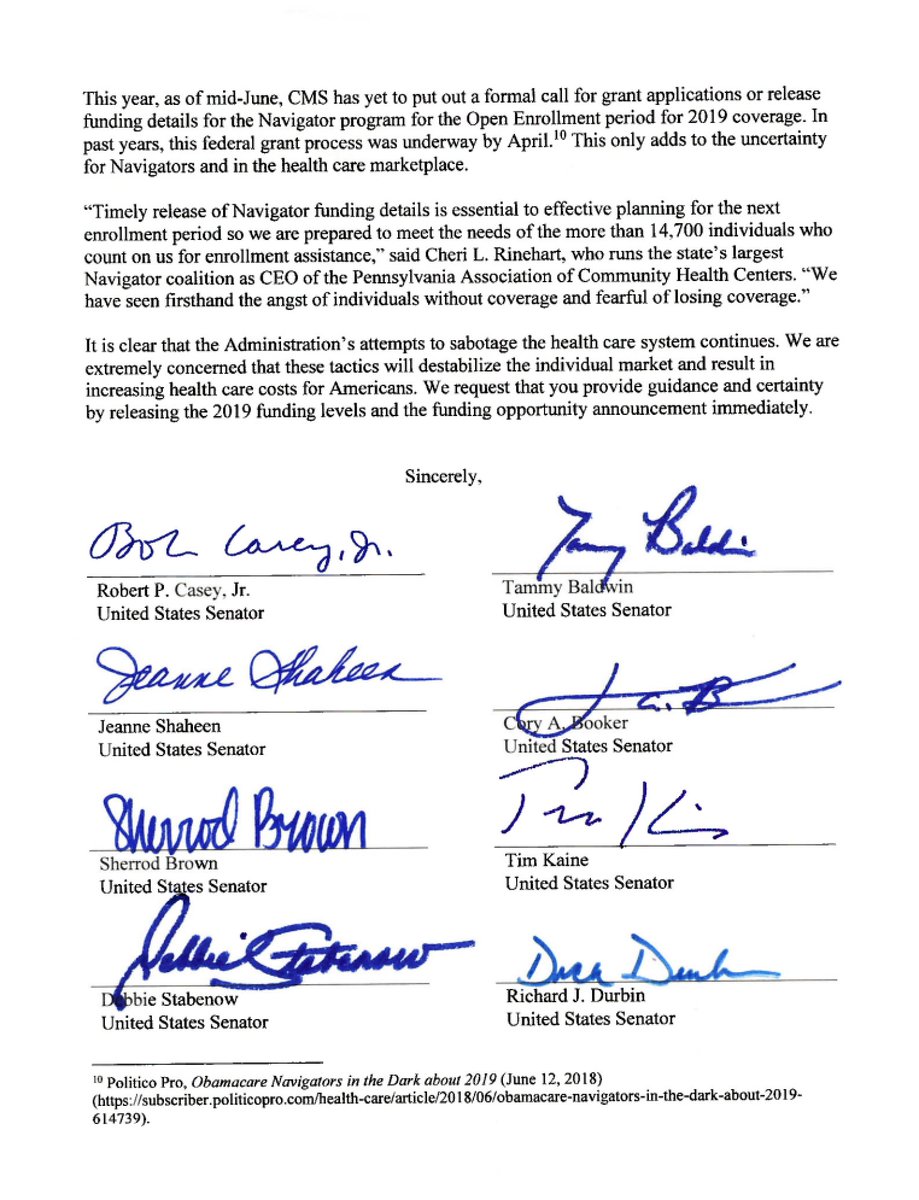 This year, as of mid-June, CMS has yet to put out a formal call for grant applications or release
funding details for the Navigator program for the Open Enrollment period for 2019 coverage. In
past years, this federal grant process was underway by April.¹⁰ This only adds to the uncertainty
for Navigators and in the health care marketplace.
“Timely release of Navigator funding details is essential to effective planning for the next
enrollment period so we are prepared to meet the needs of the more than 14,700 individuals who
count on us for enrollment assistance,” said Cheri L. Rinehart, who runs the state’s largest
Navigator coalition as CEO of the Pennsylvania Association of Community Health Centers. “We
have seen firsthand the angst of individuals without coverage and fearful of losing coverage.”
It is clear that the Administration’s attempts to sabotage the health care system continues. We are
extremely concerned that these tactics will destabilize the individual market and result in
increasing health care costs for Americans. We request that you provide guidance and certainty
by releasing the 2019 funding levels and the funding opportunity announcement immediately.
Sincerely,
Bob Casey, Jr.
Tammy Baldwin
Robert P. Casey, Jr.
Tammy Baldwin
United States Senator
United States Senator
Jeanne Shaheen
Jeanne Shaheen
Cory A. Booker
United States Senator
United States Senator
Sherrod Brown
Tim Kaine
Sherrod Brown
Tim Kaine
United States Senator
United States Senator
Debbie Stabenow
Dick Durbin
Debbie Stabenow
Richard J. Durbin
United States Senator
United States Senator
¹⁰ Politico Pro, Obamacare Navigators in the Dark about 2019 (June 12, 2018)
(https://subscriber.politicopro.com/health-care/article/2018/06/obamacare-navigators-in-the-dark-about-2019-
614739).